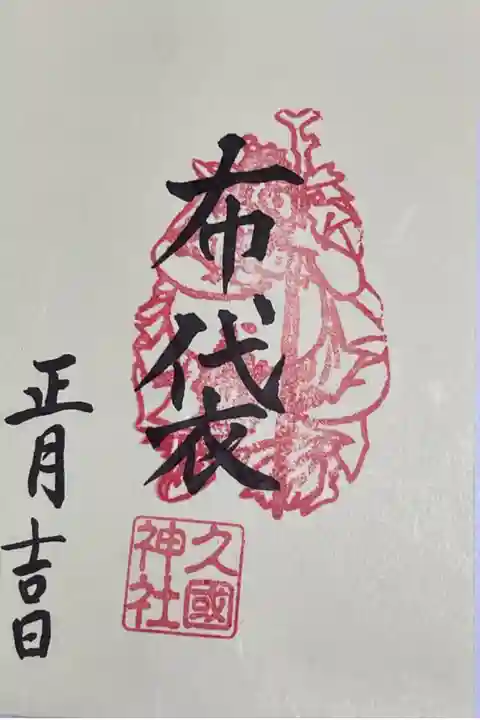 布袋
久國
神社
正月吉日